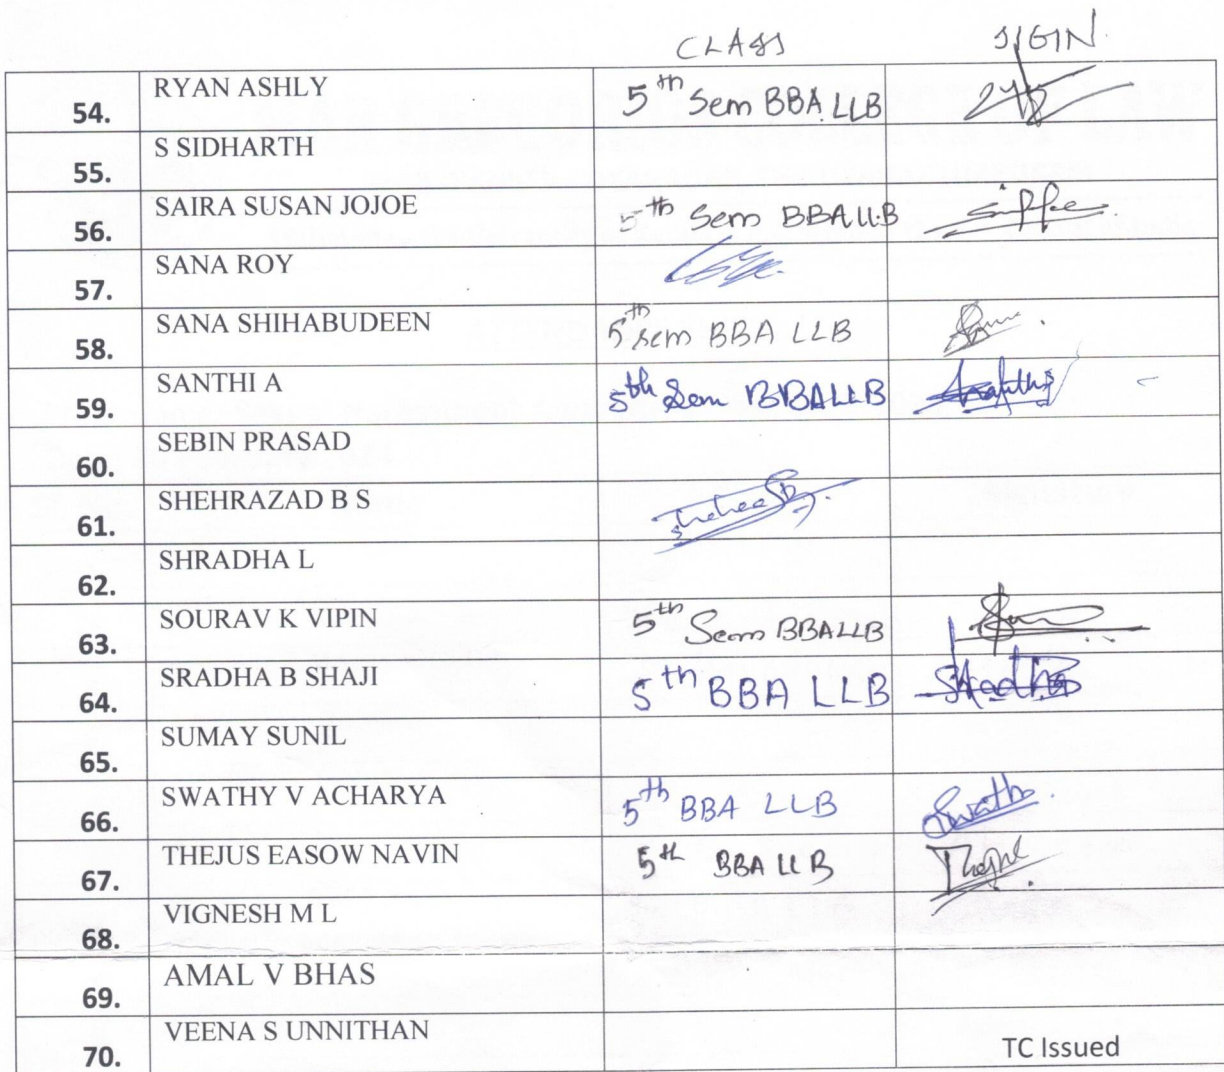 CLASS SIGIN
54. RYAN ASHLY 5th Sem BBA LLB
55. S SIDHARTH
56. SAIRA SUSAN JOJOE 5th Sem BBA LLB
57. SANA ROY
58. SANA SHIHABUDEEN 5th sem BBA LLB
59. SANTHI A 5th Sem BBALLB
60. SEBIN PRASAD
61. SHEHRAZAD B S
62. SHRADHA L
63. SOURAV K VIPIN 5th Sem BBALLB
64. SRADHA B SHAJI 5th BBA LLB Shradha
65. SUMAY SUNIL
66. SWATHY V ACHARYA 5th BBA LLB Swathy
67. THEJUS EASOW NAVIN 5th BBA LLB
68. VIGNESH M L
69. AMAL V BHAS
70. VEENA S UNNITHAN TC Issued